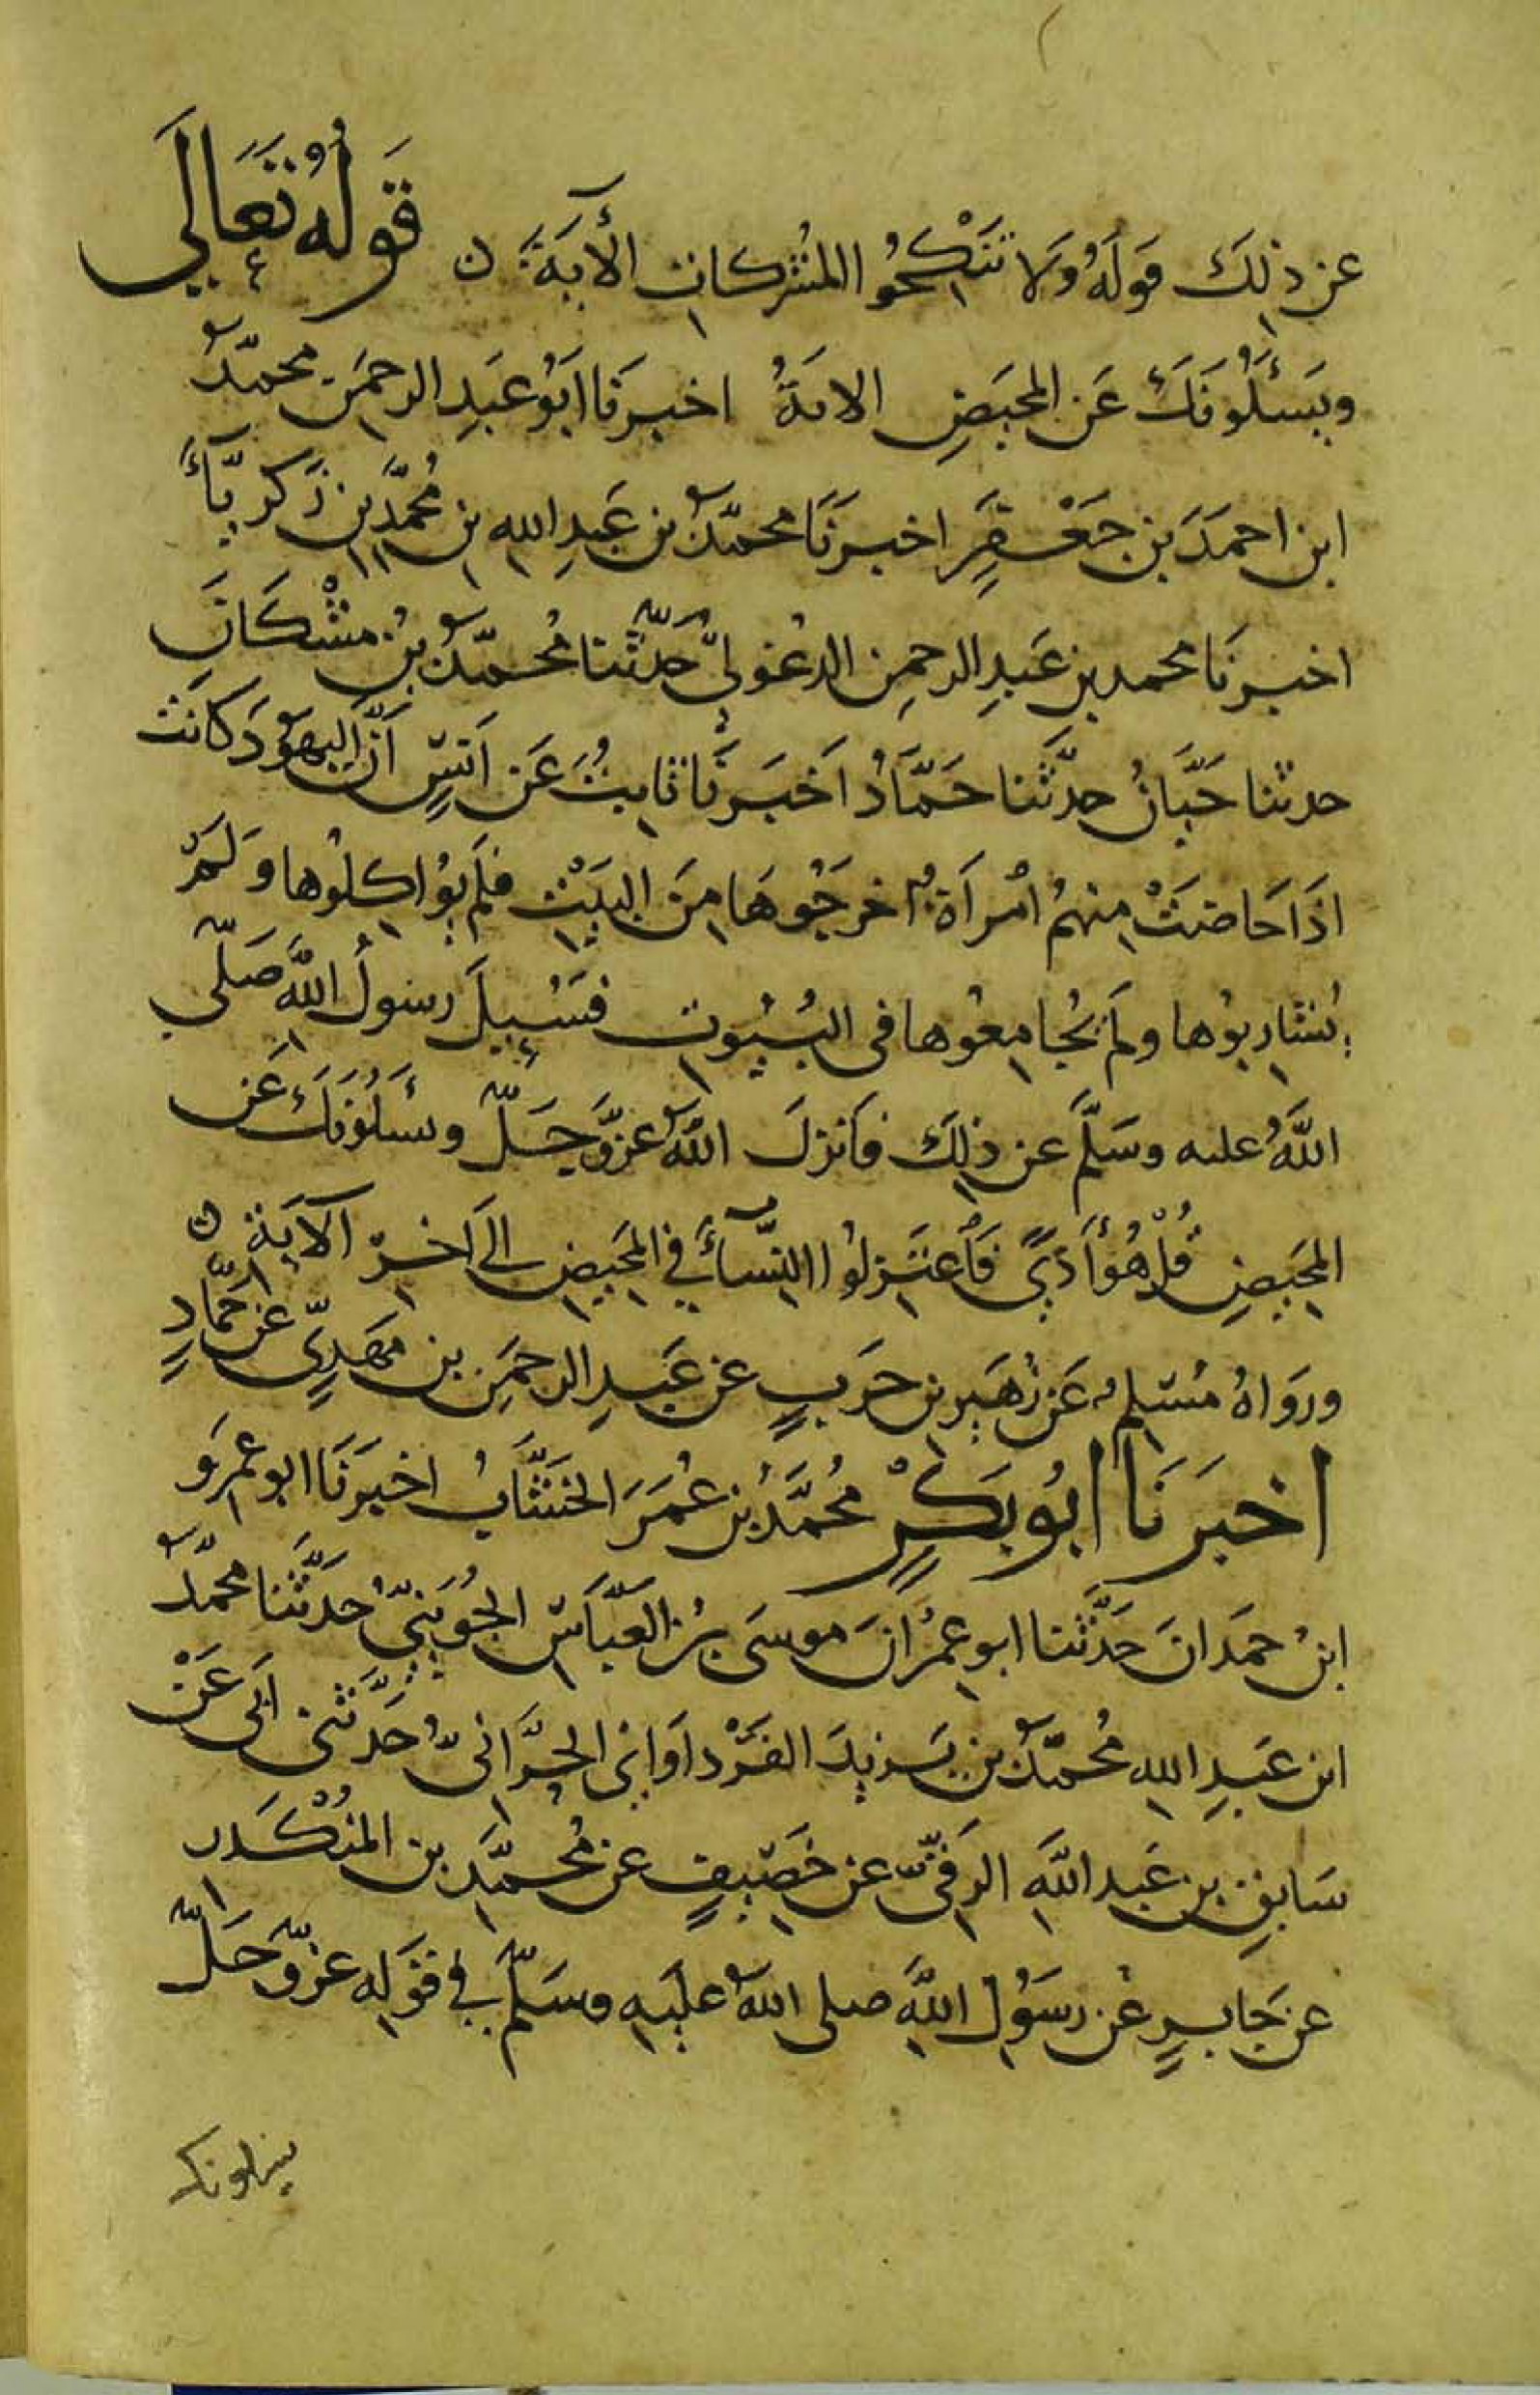 عن ذٰلِكَ قَولَهُ وَلا تَنْكِحُوا المُشركاتِ الْأيَةَ ن قَولُهُ تَعَالَى
ويَسئَلُونَكَ عَن المَحيَضِ الايةُ اخبرَنَا ابَوُ عَبدِ الرحمَنِ محمّدُ
ابن احمَدَ بن جَعْفَرٍ اخبرَنَا محمّدُ بن عَبدِ الله بن مُحمَّدِ بن زَكريَّاَء
اخبرَنَا محمد بن عَبدِ الرحمِن الدغولىُّ حَدّثَنا مُحمّدُ بنُ مشْكَانَ
حدثنا حَبَّانُ حدَّثَنا حَمَّادُ اَخَبَرنَا ثابِتُ عَن اَنَسٍ اَنَّ اليهَودَ كانَتْ
اذَا حَاضَتْ مِنهمُ امْرأَةُ اخرجَوُهَا مِنَ البَيْتِ فلَم يُؤاكِلُوها وَلَمْ
يُشارِبوُها ولَم يُجامِعُوها فى البُيُوتِ فسُئِيلَ رسولُ اللَّهِ صَلّى
اللَّهُ عليه وسَلَّمَ عن ذلِكَ فَانزلَ اللهُ عَزَّوَجَلّ وسَئَلُونَكَ عَن
المَحيَضِ قُلْ هُوَ أَذًى فَاعْتَزِلُوا النِّسَاَءَ فِي المَحِيضِ اِلىَ اخِرِ الآيَةِ ن
وروَاهُ مُسْلِمُ عَن زُهَيرِ بن حَربٍ عن عَبدِ الرحمَنِ بن مَهدِىٍّ عَن حَمَّادٍ
اخبرَنَا ابُو بَكرٍ مُحمَّدُ بن عُمَرَ الخشَّابُ اخبَرَنَا ابو عمرِو
ابنُ حمَدانَ حَدَّثَنا ابو عِمْرانَ موسَى بنُ العَبَّاسِ الجُوَينِىُّ حدَّثَنا محمّدُ
ابن عَبدِ الله مُحمّدُ بن يَزِيدَ الفَرْدَاوَانِى الحَرَّانىُّ حَدَّثَنى ابَى عَنْ
سَابِقِ بن عَبدِ اللَّهِ الرَقِىّ عن خَصِيفٍ عن مُحمَّدِ بن المُنْكَدِر
عن جَابرٍ عَن رسَوُلِ اللَّهِ صلى اللهُ علَيهِ وسَلَّمَ فِي قَولِه عَزَّوَجَلَّ
يسئلونك